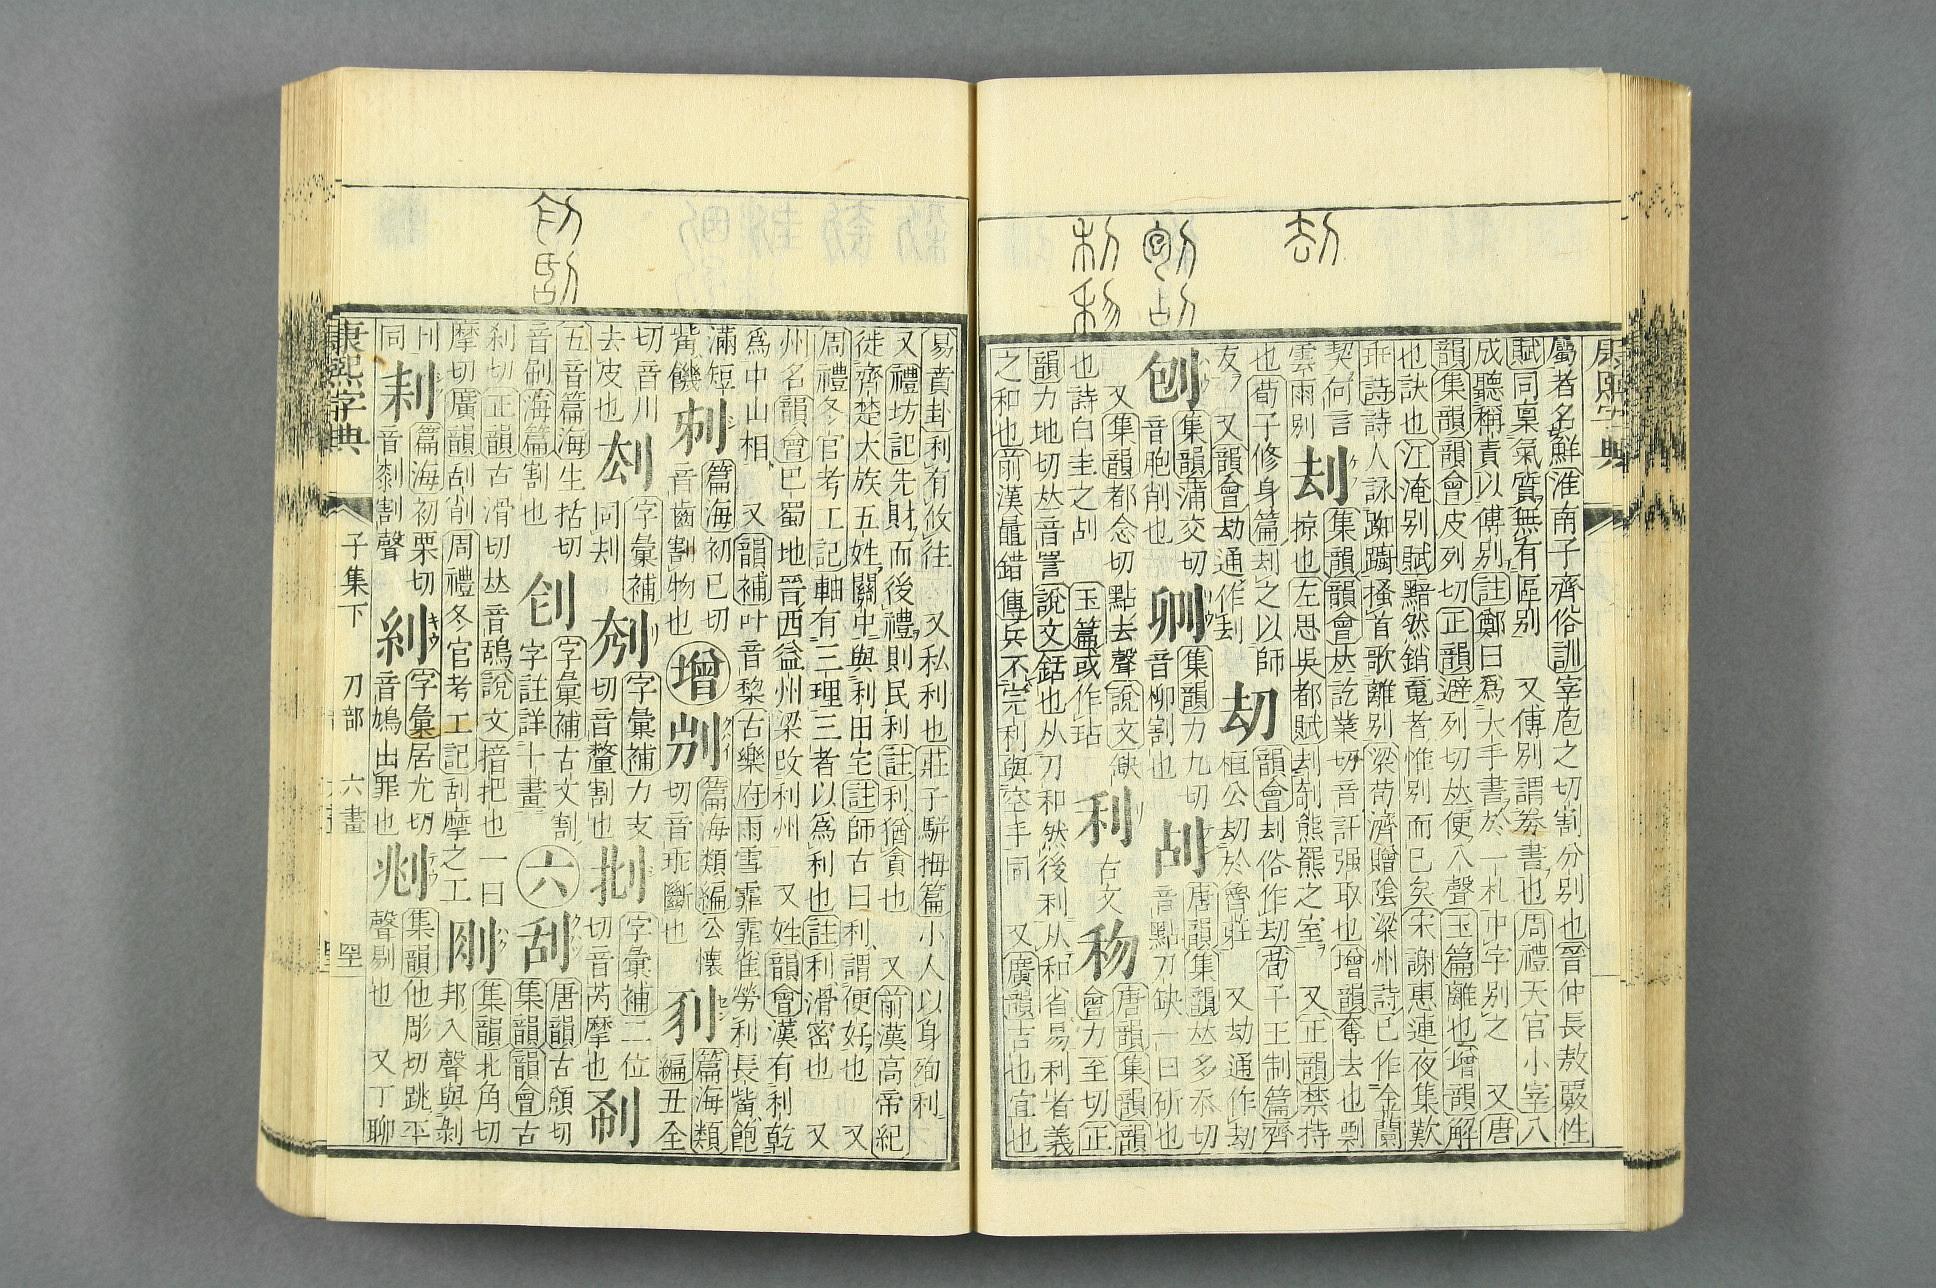 康熙字典
屬者名鮮淮南子齊俗訓宰庖之切割分別也晉仲長敖覈性
賦同稟氣質無有區別 又傅別謂券書也周禮天官小宰八
成聽稱責以傅別註鄭曰爲大手書於一札中字別之 又唐
韻集韻韻會皮列切正韻避列切𠀤便入聲玉篇離也增韻解
也訣也江淹別賦黯然銷䰟者惟別而已矣宋謝惠連夜集歎
乖詩詩人詠踟躕搔首歌離別梁荀濟贈陰梁州詩已作金蘭
契何言
雲雨別
刦
集韻韻會𠀤訖業切音訐强取也增韻奪去也劋
掠也左思吳都賦刦剞熊羆之室 又正韻禁持
也荀子修身篇刦之以師
友 又韻會劫通作刦
刧
韻會刦俗作刧荀子王制篇齊
桓公刧於魯莊 又劫通作刧
刨
集韻蒲交切
音胞削也
𠛓
集韻力九切
音柳割也
刮
唐韻集韻𠀤多忝切
音點刀缺一曰斫也
又集韻都念切點去聲說文缺
也詩白圭之刮 玉篇或作玷
利
古文
𥝢
唐韻集韻韻
會力至切正
韻力地切𠀤音詈說文銛也从刀和然後利从和省易利者義
之和也前漢鼂錯傳兵不完利與空手同 又廣韻吉也宜也
易賁卦利有攸往 又私利也莊子駢拇篇小人以身殉利
又禮坊記先財而後禮則民利註利猶貪也 又前漢高帝紀
徙齊楚大族五姓關中與利田宅註師古曰利謂便好也 又
周禮冬官考工記軸有三理三者以爲利也註利滑密也 又
州名韻會巴蜀地晉西益州梁改利州 又姓韻會漢有利乾
爲中山相 又韻補叶音黎古樂府雨雪霏霏雀勞利長觜飽
滿短
觜饑
篇海初已切
音齒割物也
增
篇海類編公懷
切音乖斷也
篇海類
編丑全
切音川
去皮也
字彙補
同刦
字彙補力支
切音釐割也
字彙補二位
切音芮摩也
五音篇海生括切
音刷海篇割也
字彙補古文割
字註詳十畫
六
刮
唐韻古頒切
集韻韻會古
刹切正韻古滑切𠀤音鴰說文掊把也一曰
摩切廣韻刮削周禮冬官考工記刮摩之工
集韻北角切
邦入聲與剝
同
篇海初栗切
音㓼割聲
字彙居尤切
音鳩出罪也
集韻他彫切跳平
聲剔也 又丁聊
康熙字典
子集下
刀部
六畫